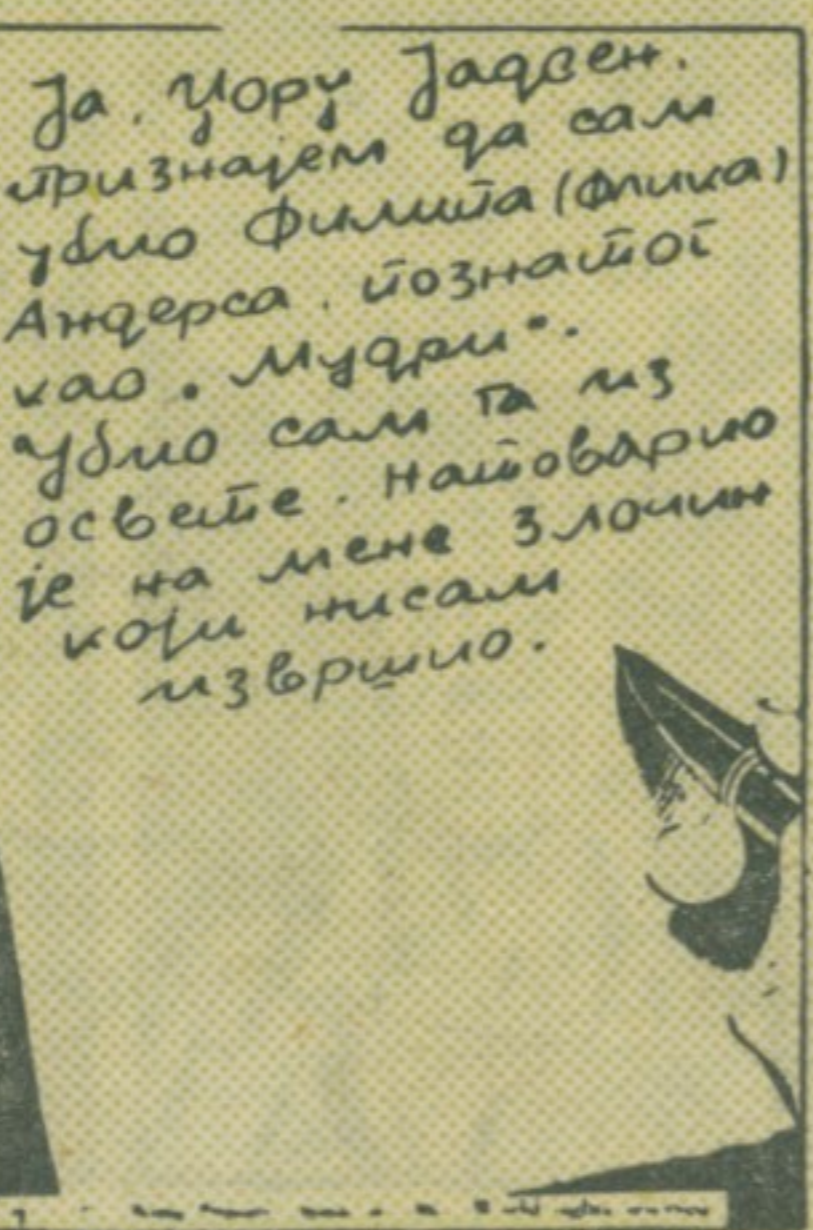 Ја, Џорџ Јадсен.
признајем да сам
убио Филипа (Флика)
Андерса, познатог
као „Мудри“.
Убио сам га из
освете. Натоварио
је на мене злочин
који нисам
извршио.